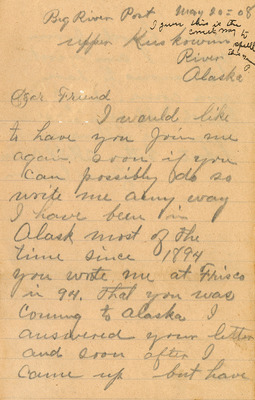 Big River Post May 20 = 08
I guess this is the
correct way to
spell
this river
Upper Kuskowim
River
Alaska
Dear Friend
I would like
to have you Join me
again soon if you
can possibly do so
write me any way
I have been in
Alask most of the
time since 1794
you wrote me at Frisco
in 94. that you was
Coming to Alaska I
answered your letter
and soon after I
came up but have